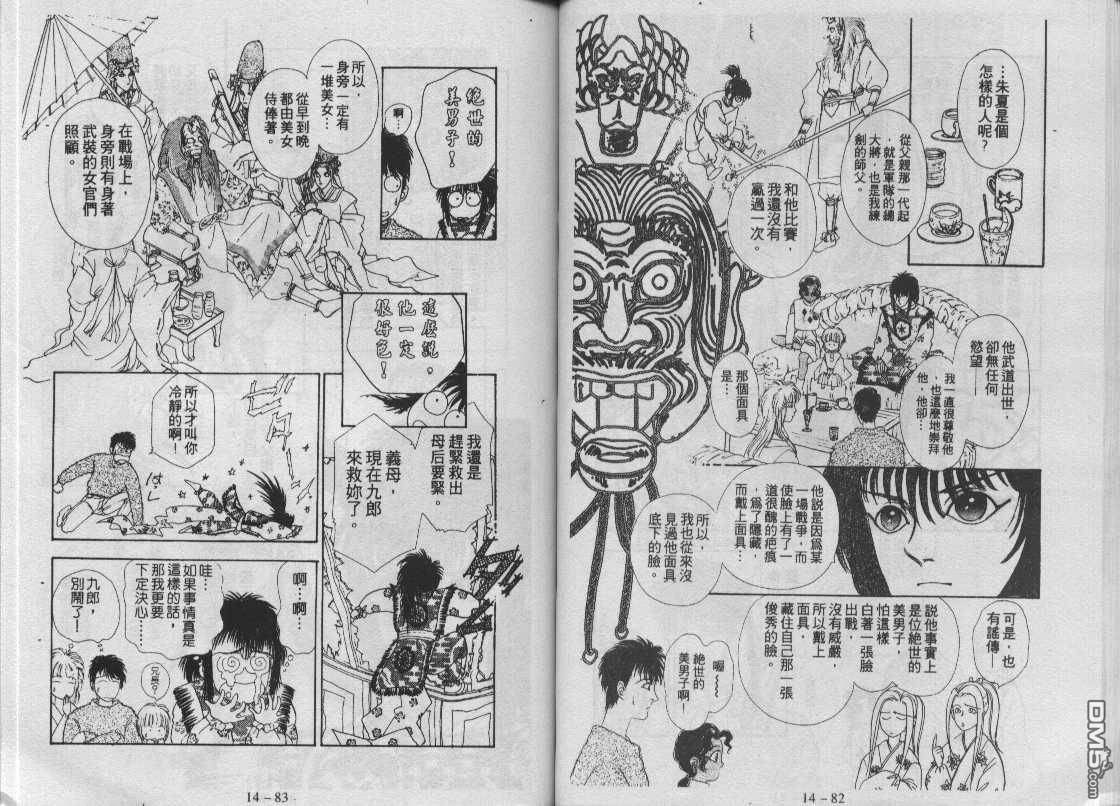 …朱夏是個
怎樣的人呢？
從父親那一代起
就是軍隊的總
大將，也是我練
劍的師父。
和他比賽，
我還沒有
贏過一次。
他武道出世，
卻無任何
慾望——
我一直很尊敬他
，也這麼地崇拜
他，他卻…
那個面具
是…
他說是因為某
一場戰爭，而
使臉上有了一
道很醜的疤痕
，為了隱藏
而戴上面具…
所以，
我也從來沒
見過他面具
底下的臉。
可是，也
有謠傳——
說他事實上
是位絕世的
美男子，
怕這樣
白著一張臉
出戰，
沒有威嚴，
所以戴上
面具，
藏住自己那一張
俊秀的臉。
喔～～
絕世的
美男子啊！
14－82
絕世的
美男子！
啊…
所以，
身旁一定有
一堆美女…
從早到晚
都由美女
侍俸著。
在戰場上，
身旁則有身著
武裝的女官們
照顧。
這麼說，
他一定
很好色！
我還是
趕緊救出
母后要緊。
義母，
現在九郎
來救妳了。
所以才叫你
冷靜的啊！
啊…啊…
哇…
如果事情真是
這樣的話，
那我更要
下定決心……
九郎，
別鬧了！
兄長？
14－83
DM5.com